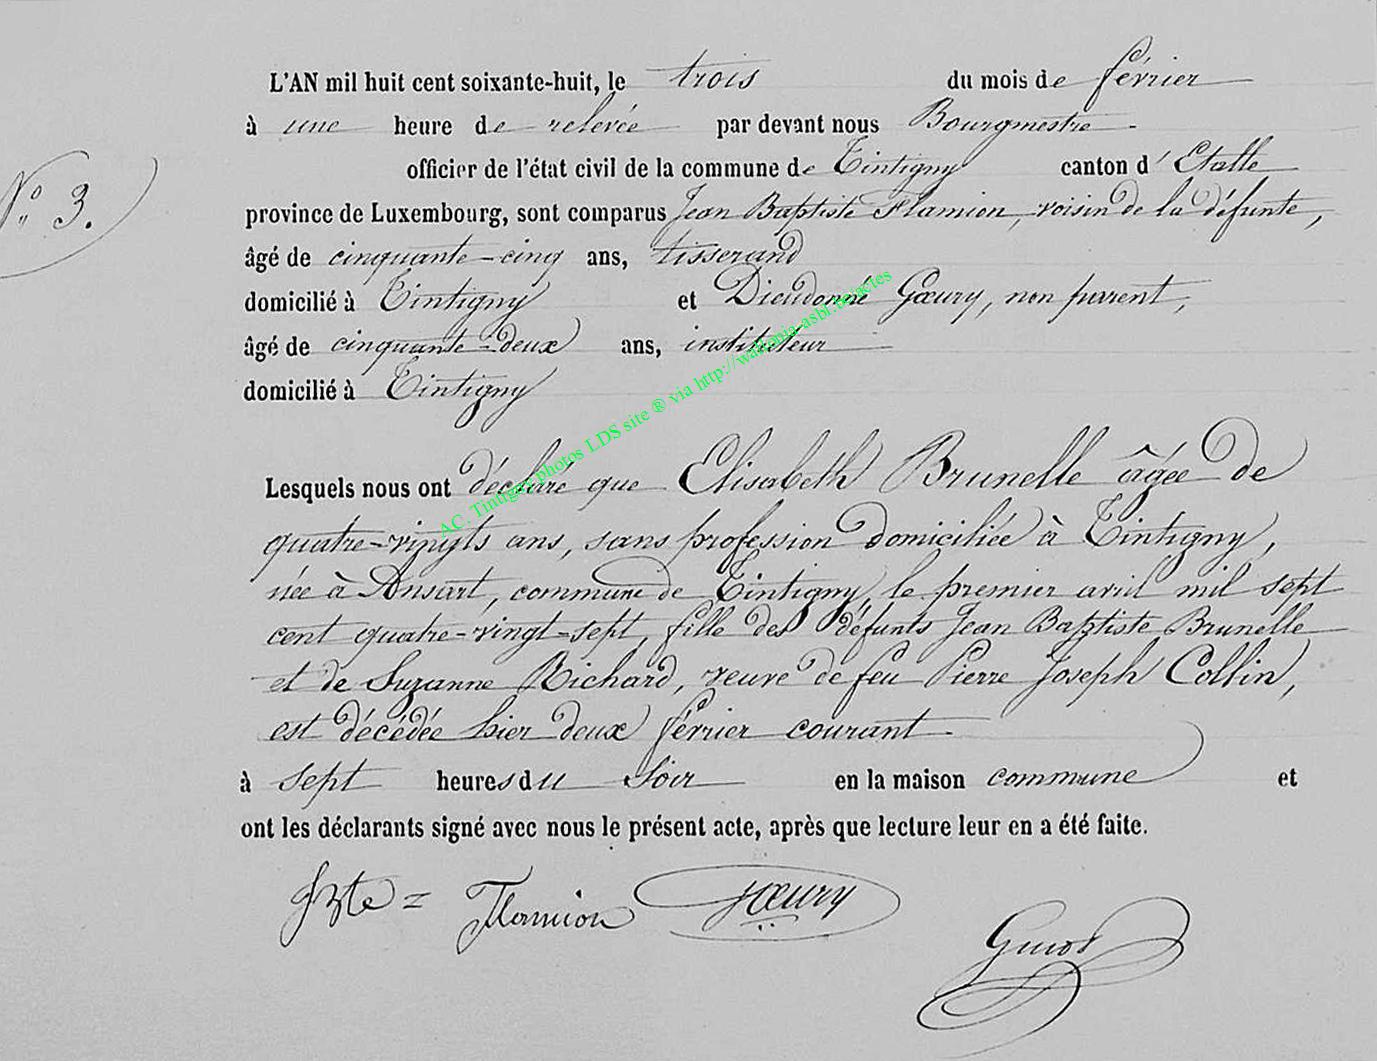 L'AN mil huit cent soixante-huit, le trois du mois de février
à une heure de relevée par devant nous Bourgmestre
officier de l'état civil de la commune de Tintigny canton d'Etalle
N° 3. province de Luxembourg, sont comparus Jean Baptiste Flamion, voisin de la défunte,
âgé de cinquante-cinq ans, tisserand
domicilié à Tintigny et Dieudonné Gœury, non parent,
âgé de cinquante-deux ans, instituteur
domicilié à Tintigny
Lesquels nous ont déclaré que Elisabeth Brunelle âgée de
quatre-vingts ans, sans profession domiciliée à Tintigny,
née à Ansart, commune de Tintigny, le premier avril mil sept
cent quatre-vingt-sept, fille des défunts Jean Baptiste Brunelle
et de Suzanne Richard, veuve de feu Pierre Joseph Collin,
est décédée hier deux février courant
à sept heures du soir en la maison commune et
ont les déclarants signé avec nous le présent acte, après que lecture leur en a été faite.
JBte = Flamion Gœury
AC. Tintigny photos LDS site ® via http://wallonia-asbl.be/actes